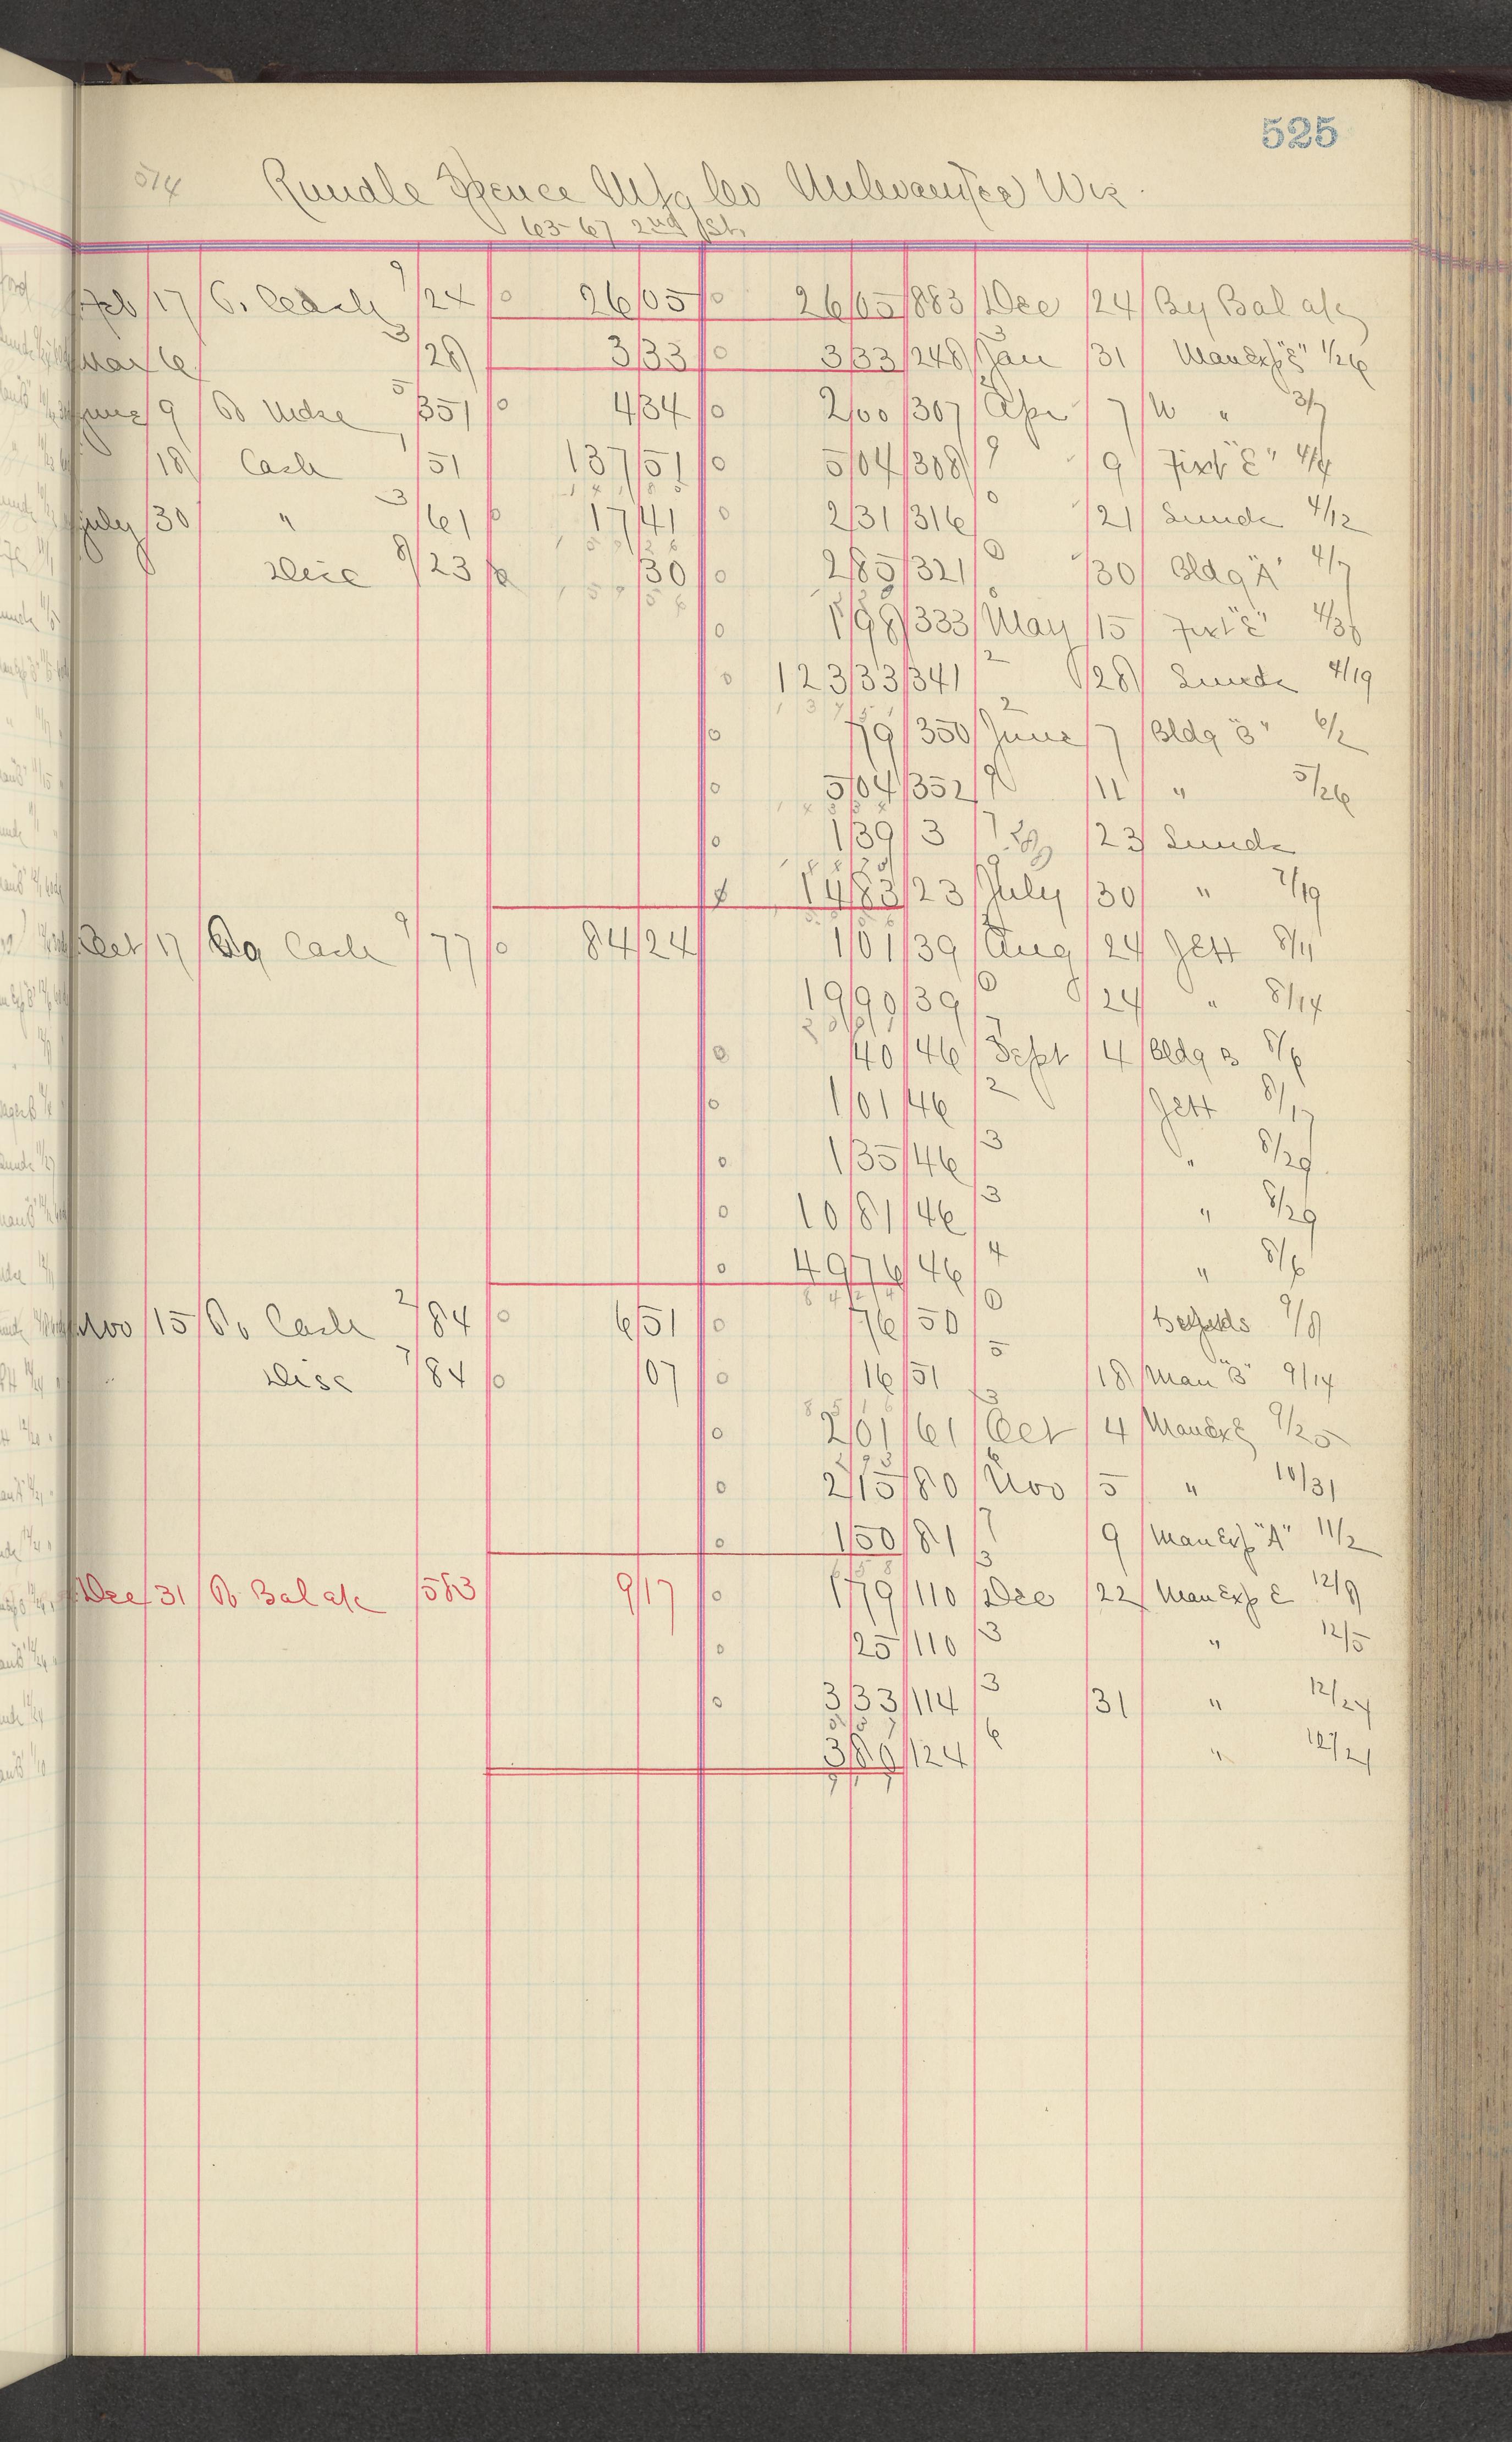 525
514 Rundle Spence Mfg Co Milwaukee Wis.
63-67 2nd St.
Feb 17 Cash 9 24 26 05 26 05 883 Dec 24 By Bal a/c
Mar 6 3 28 3 33 3 33 248 3 Jan 31 Man Exp "E" 1/26
June 9 To Mdse 5 351 4 34 2 00 307 Apr 7 " 3/7
18 Cash 1 51 137 51 5 04 308 9 9 Fixt "E" 4/4
July 30 " 3 61 17 41 2 31 316 0 21 Sunds 4/12
Disc 8 23 30 2 85 321 0 30 Bldg "A" 4/7
1 98 333 May 15 Fixt "E" 4/30
123 33 341 2 28 Sunds 4/19
79 350 2 June 7 Bldg "B" 6/2
5 04 352 9 11 " 5/26
1 39 3 7 23 Sunds
14 83 23 9 July 30 " 7/19
Oct 17 To Cash 9 77 84 24 1 01 39 Aug 24 Jett 8/11
19 90 39 0 24 " 8/14
40 46 Sept 4 Bldg B 8/6
1 01 46 2 Jett 8/17
1 35 46 3 " 8/29
10 81 46 3 " 8/29
49 76 46 4 " 8/6
Nov 15 To Cash 2 84 6 51 76 50 0 9/8
Disc 7 84 07 16 51 5 18 Man "B" 9/14
2 01 61 3 Oct 4 Man Ex E 9/25
2 15 80 6 Nov 5 " 10/31
1 50 81 7 9 Man Exp "A" 11/2
Dec 31 To Bal a/c 583 9 17 1 79 110 3 Dec 22 Man Exp E 12/9
25 110 3 " 12/5
3 33 114 3 31 " 12/24
3 80 124 6 " 12/21